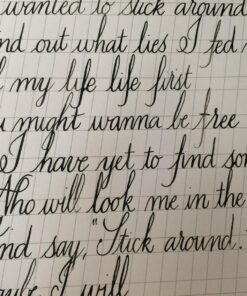 wanted to stick around
nd out what lies I fed
my life life first
might wanna be free
I have yet to find so
Who will look me in the
nd say, "Stick around.
I will